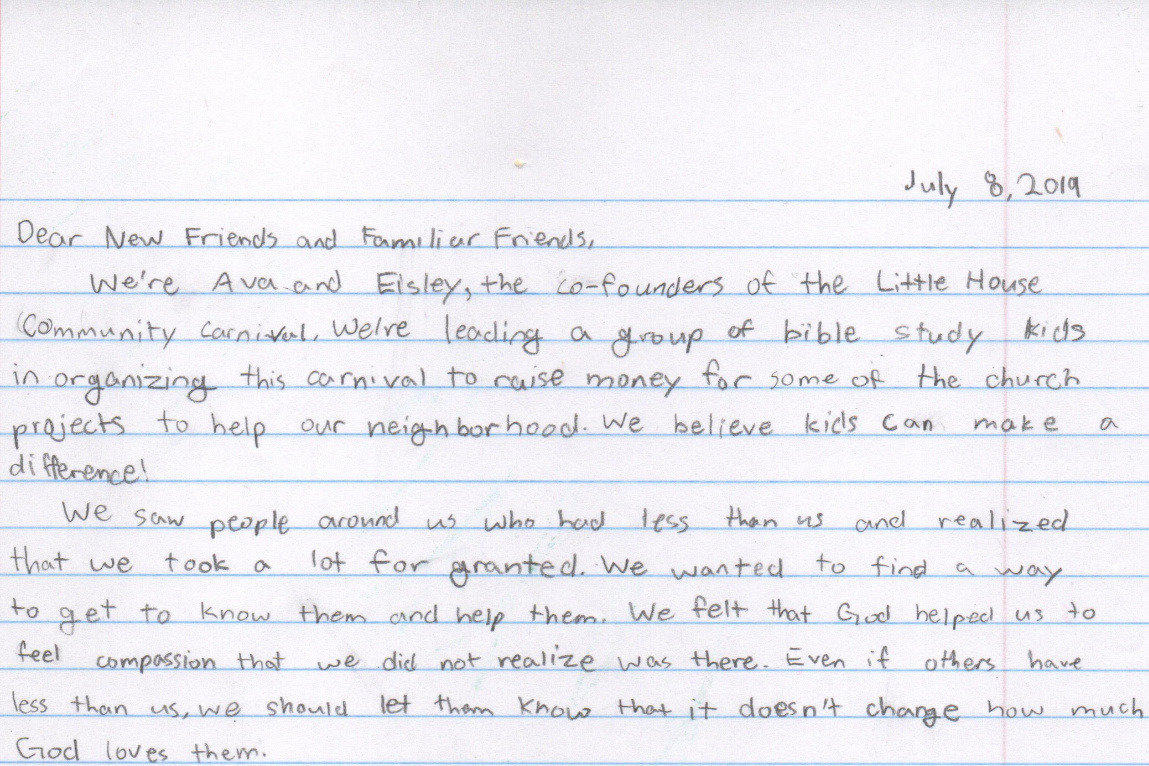 July 8, 2019
Dear New Friends and Familiar Friends,
We're Ava and Eisley, the co-founders of the Little House
Community Carnival. We're leading a group of bible study kids
in organizing this carnival to raise money for some of the church
projects to help our neighborhood. We believe kids can make a
difference!
We saw people around us who had less than us and realized
that we took a lot for granted. We wanted to find a way
to get to know them and help them. We felt that God helped us to
feel compassion that we did not realize was there. Even if others have
less than us, we should let them know that it doesn't change how much
God loves them.